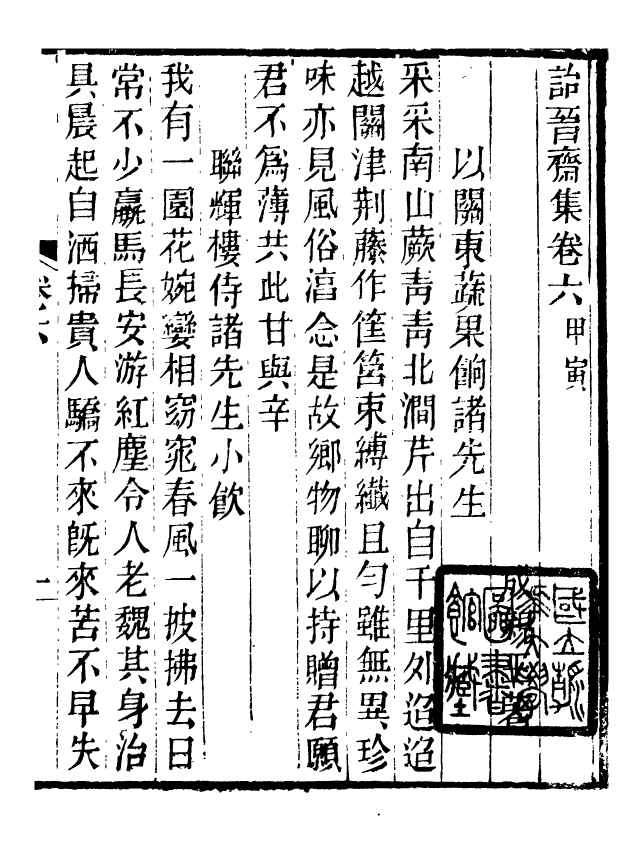 詒晉齋集卷六 甲寅
成親王
以關東蔬果餉諸先生
采采南山蕨靑靑北澗芹出自千里外迢迢
越關津荆藤作筐筥束縛纎且勻雖無異珍
味亦見風俗湻念是故鄉物聊以持贈君願
君不爲薄共此甘與辛
聯輝樓侍諸先生小飮
我有一園花婉孌相窈窕春風一披拂去日
常不少羸馬長安游紅塵令人老魏其身治
具晨起自洒掃貴人驕不來旣來苦不早失
卷六
一